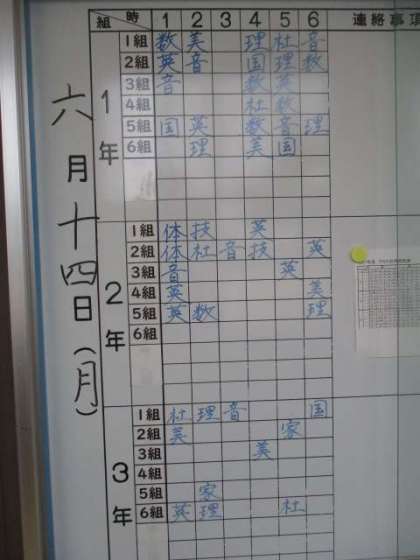 組 時 1 2 3 4 5 6 連絡事項
六月十四日(月)
1年
1組 数 美 理 社 音
2組 英 音 国 理 数
3組 音 数 英
4組 社 数
5組 国 英 数 音 理
6組 理 美 国
2年
1組 体 技 英
2組 体 社 音 技 英
3組 音 英
4組 英 美
5組 英 数 理
6組
3年
1組 社 理 音 国
2組 美 家
3組 英
4組
5組 家
6組 英 理 社